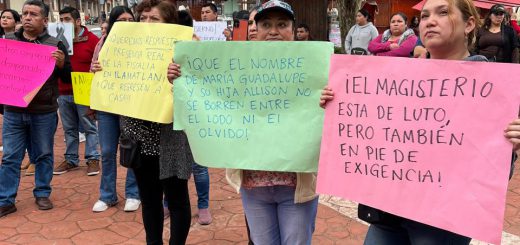 ¡QUEREMOS RESPUESTA
PRESENCIA REAL
DE LA FISCALÍA
EN ILAMATLÁN!
¡QUE REGRESEN A
CASA!
¡QUE EL NOMBRE
DE MARÍA GUADALUPE
Y SU HIJA ALLISON NO
SE BORREN ENTRE
EL LODO NI El
OLVIDO!
¡EL MAGISTERIO
ESTA DE LUTO,
PERO TAMBIÉN
EN PIE DE
EXIGENCIA!